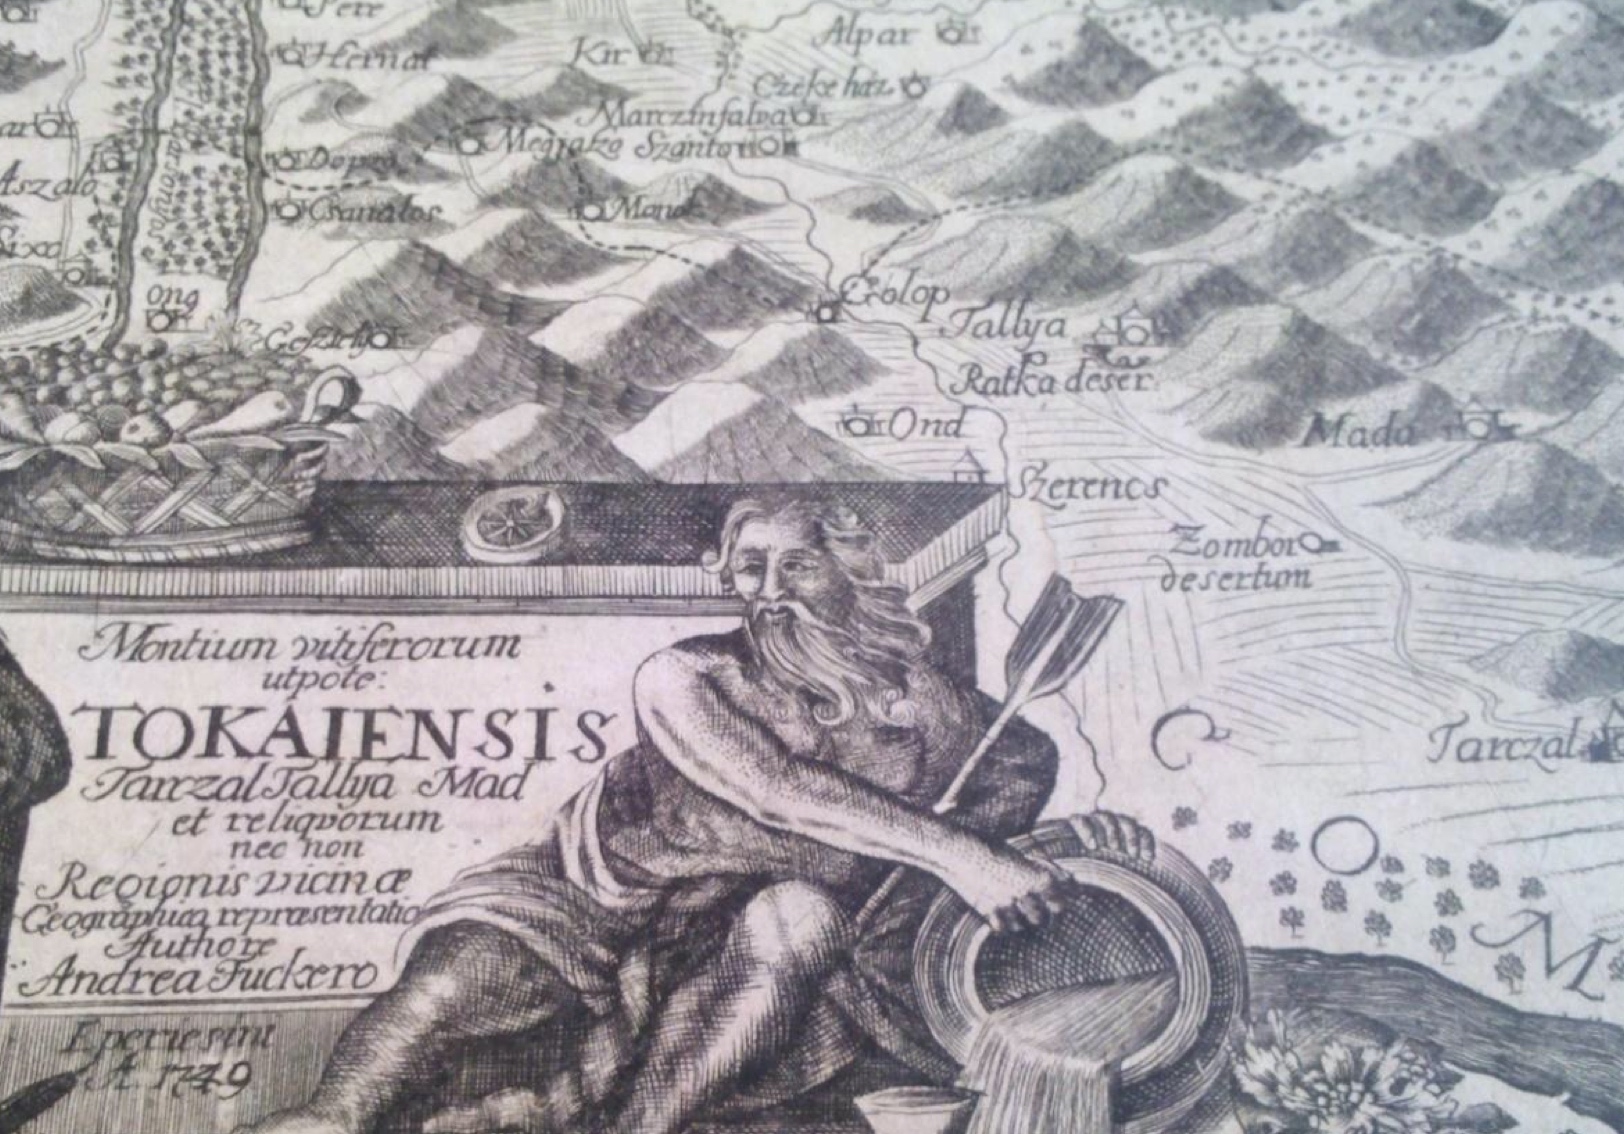 Hernat
Kir
Alpar
Czekeház
Marczinfalva
Megjaszo
Szánto
Dopza
Aszaló
Csanálos
Monok
ong
Geszthj
Golop
Tallya
Ratka deser
Ond
Mada
Szerencs
Zombor
desertum
Tarczal
C
O
M
Montium vitiferorum
utpote:
TOKAIENSIS
Tarczal Tallya Mad
et reliqvorum
nec non
Regionis vicinæ
Geographica repræsentatio
Authore
Andrea Fuckero
Eperiesini
A. 1749